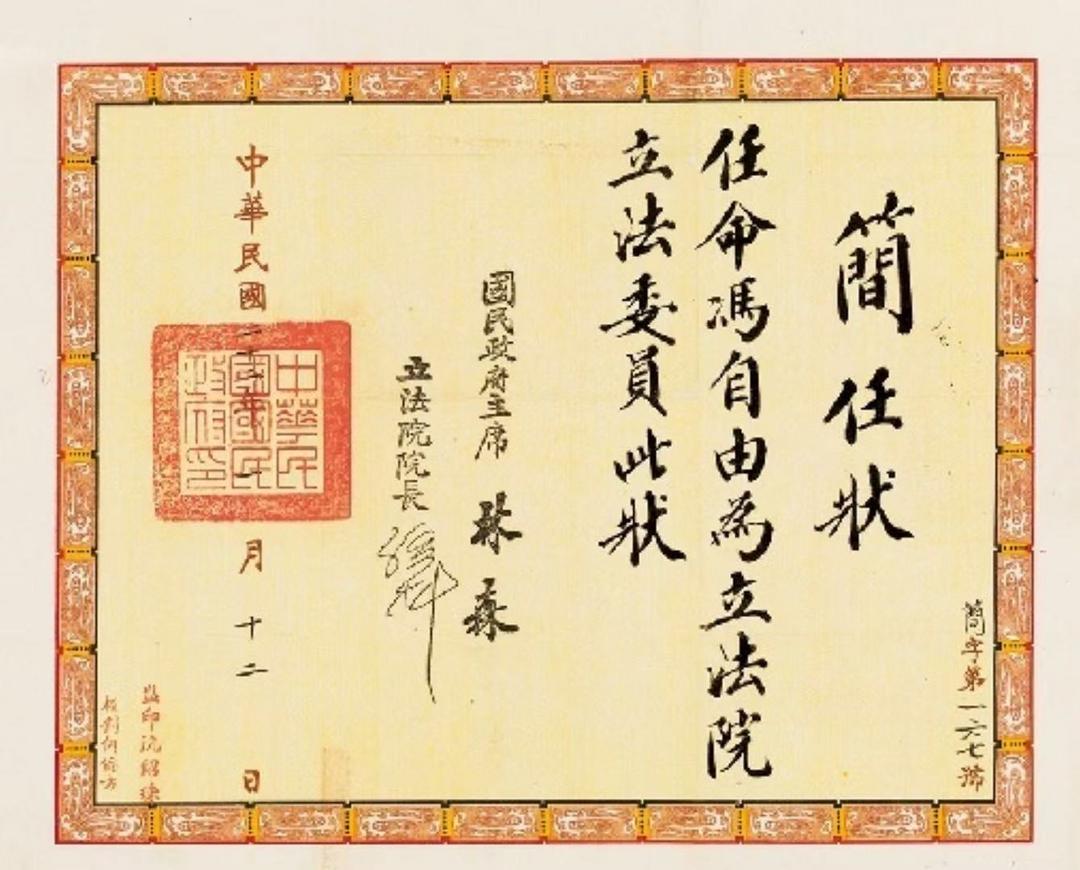 簡任狀
任命馮自由為立法院
立法委員此狀
國民政府主席 林森
立法院院長
中華民國二十二年一月十二日
中華民國國民政府印
簡字第一六七號
監印沈